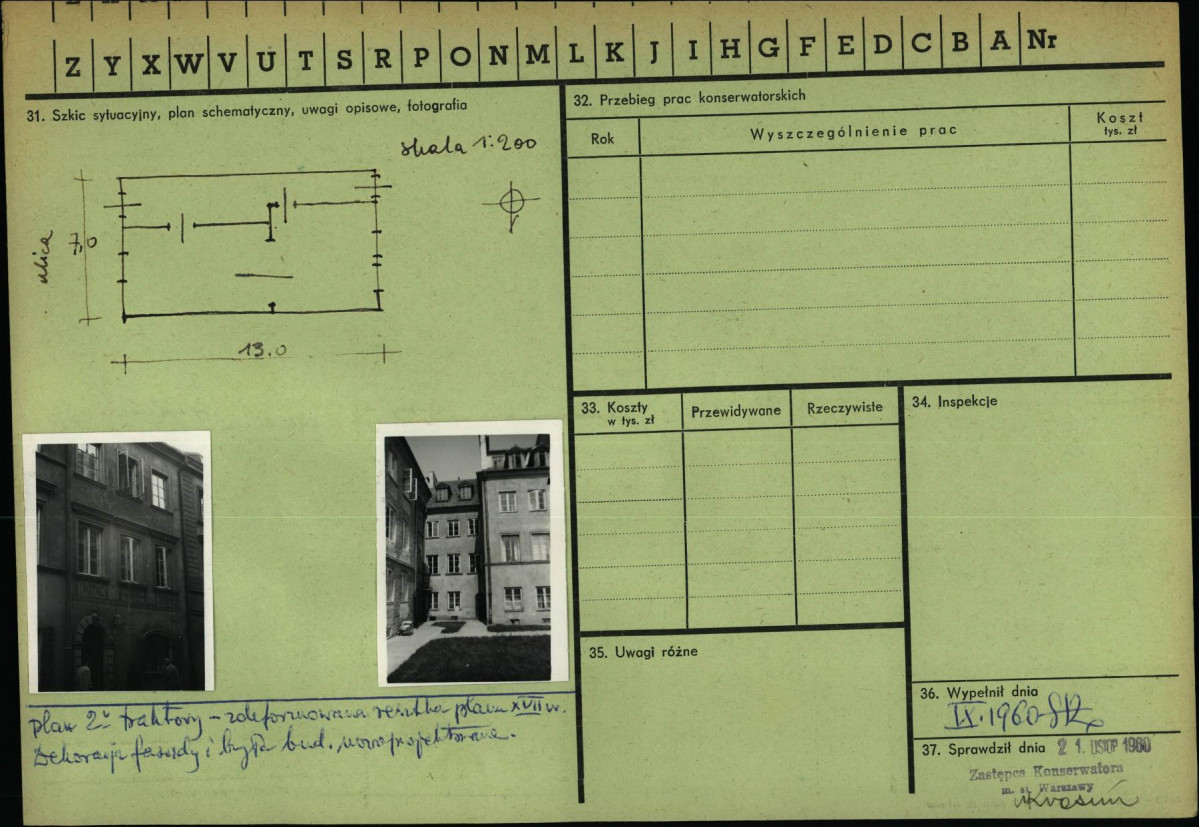 Z Y X W V U T S R P O N M L K J I H G F E D C B A Nr
31. Szkic sytuacyjny, plan schematyczny, uwagi opisowe, fotografia
skala 1:200
ulica
7,0
13.0
plan 2 traktowy – zdeformowana resztka planu XVII w.
Dekoracja fasady i bryła bud. nowoprojektowana.
32. Przebieg prac konserwatorskich
Rok
Wyszczególnienie prac
Koszt
tys. zł
33. Koszty
w tys. zł
Przewidywane
Rzeczywiste
34. Inspekcje
35. Uwagi różne
36. Wypełnił dnia
IX.1960
37. Sprawdził dnia 21. LISTOP 1960
Zastępca Konserwatora
m. st. Warszawy